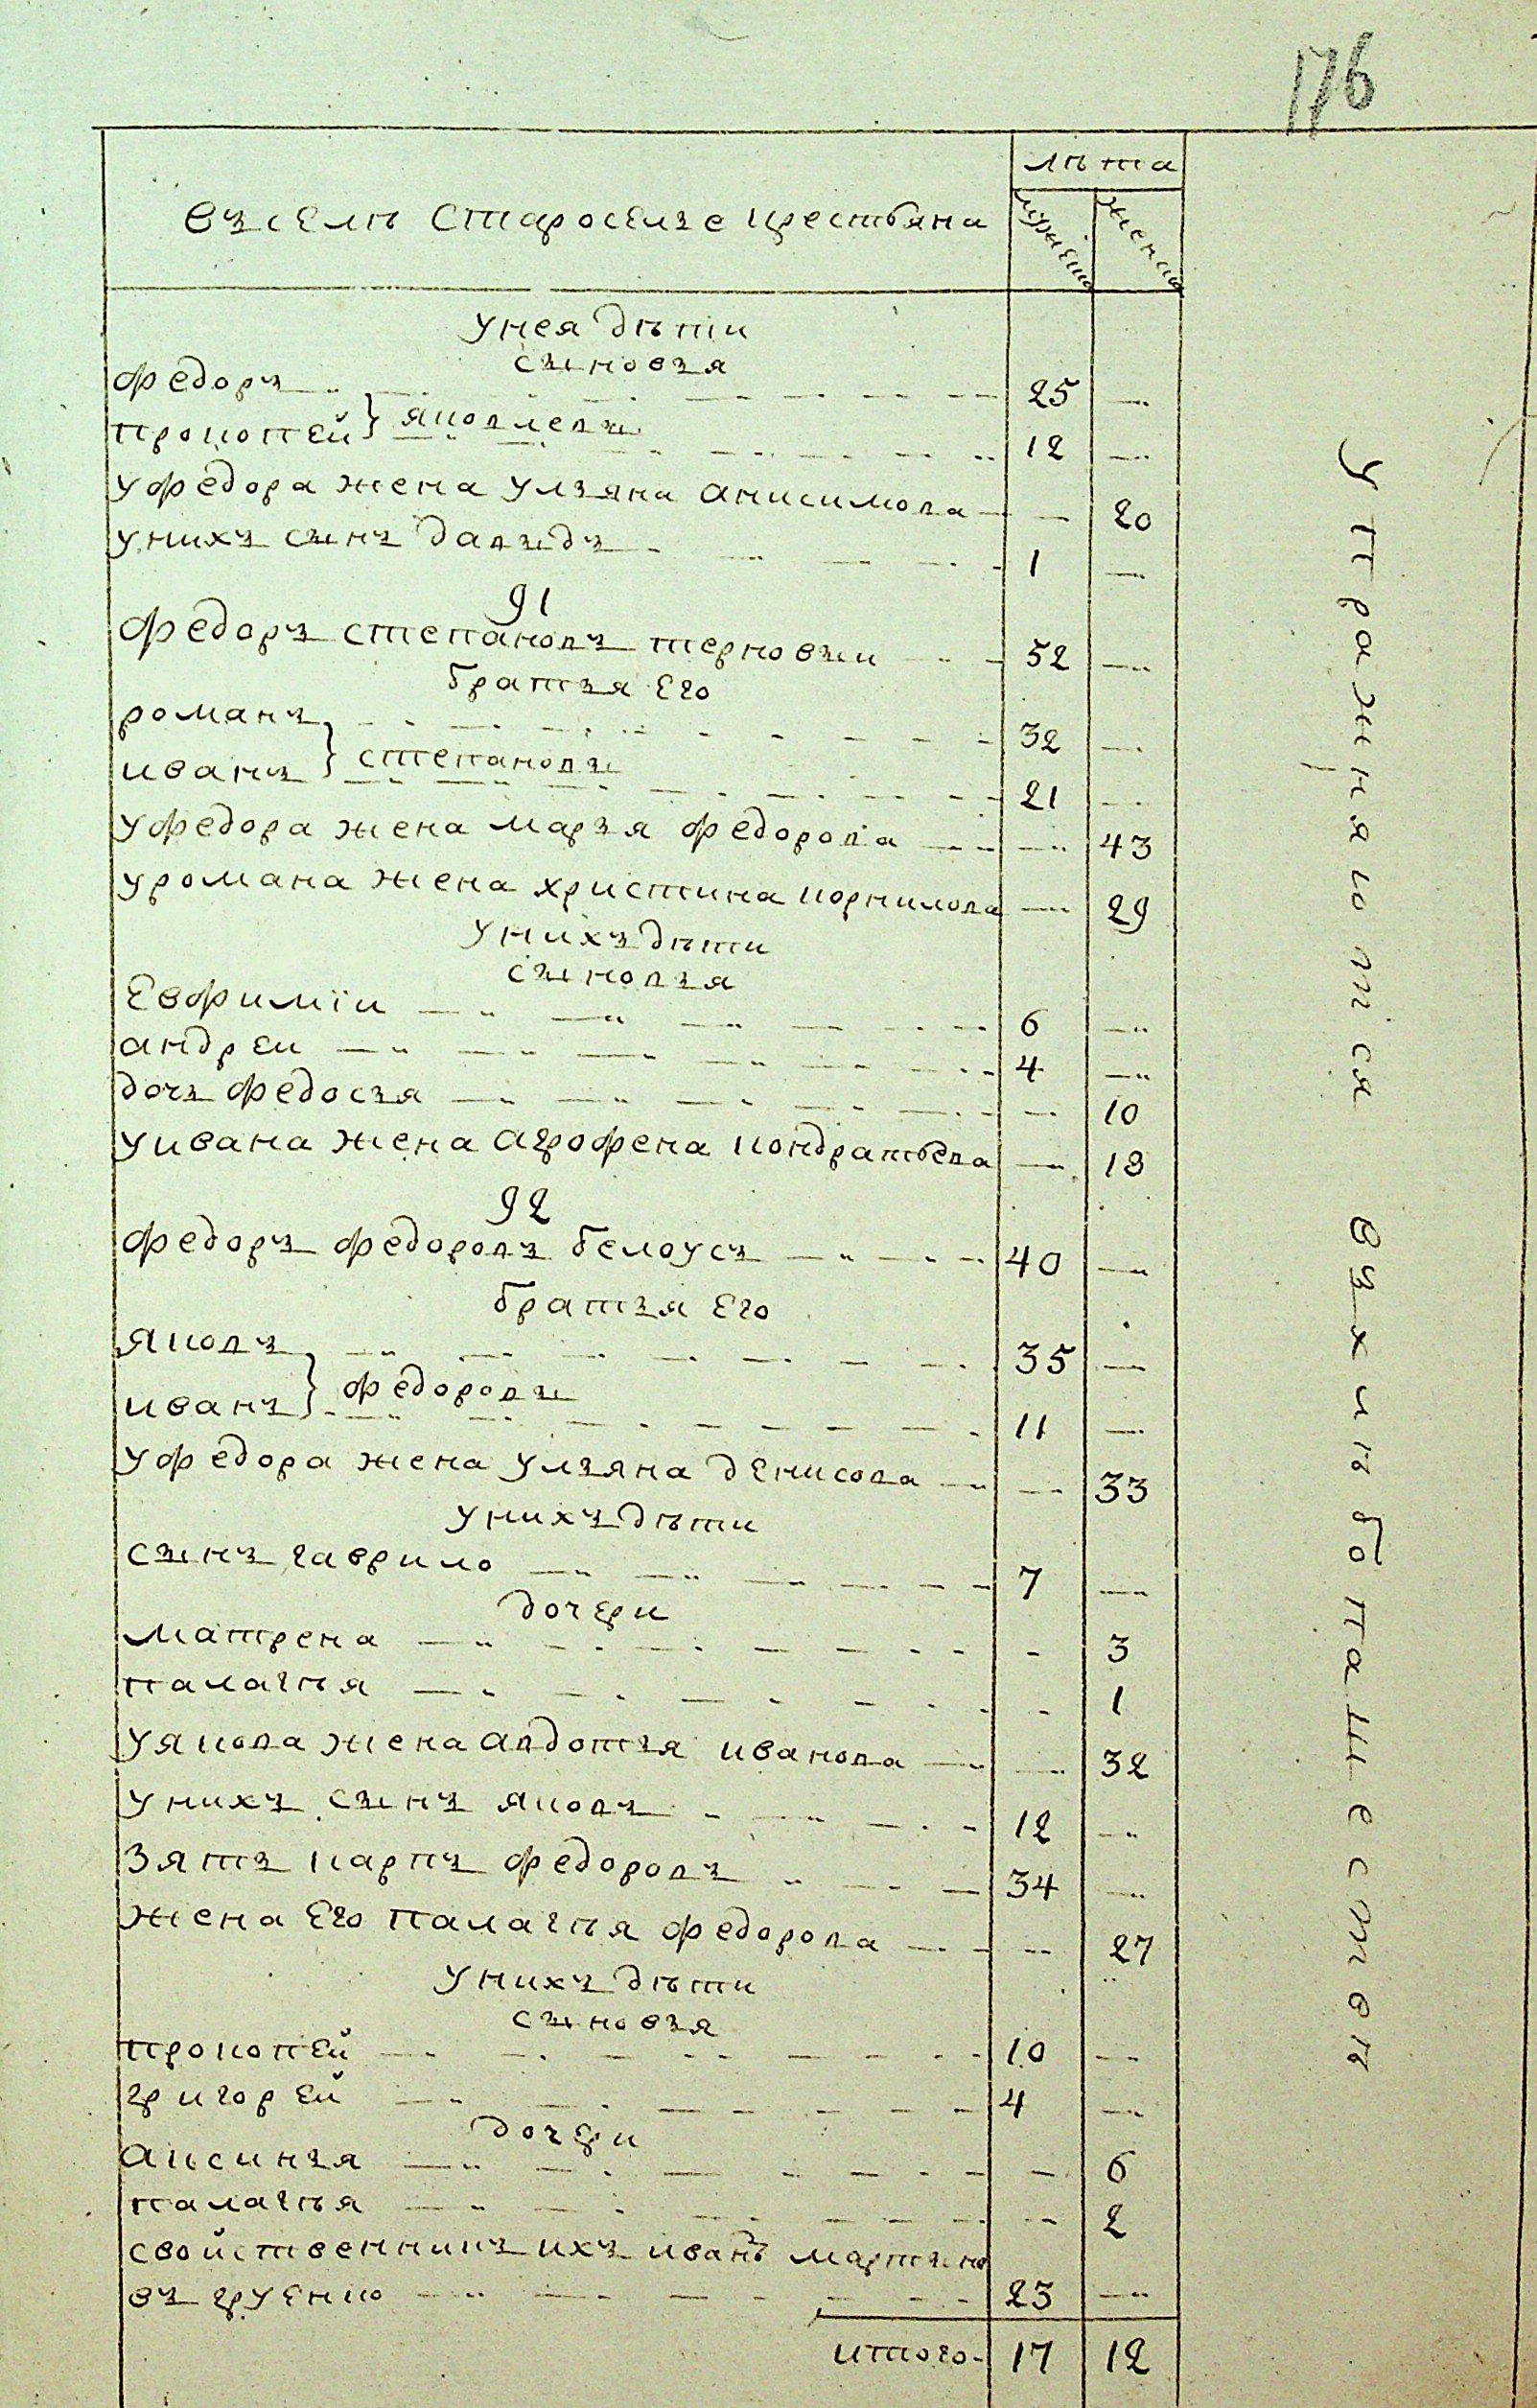 176
лѣта
въ селѣ Староселье крестьяня
мужеска
женска
у нея дѣти
сыновья
федоръ 25
прокопей } яковлевы 12
у федора жена ульяна анисимова 20
у нихъ сынъ давыдъ 1
91
федоръ степановъ терновыи 52
братья его
романъ 32
иванъ } степановы 21
у федора жена марья федорова 43
у романа жена христина корнилова 29
у нихъ дѣти
сыновья
Евфимїи 6
андреи 4
дочь федосья 10
у ивана жена агрофена кондратьева 18
92
федоръ федоровъ белоусъ 40
братья его
яковъ 35
иванъ } федоровы 11
у федора жена ульяна денисова 33
у нихъ дѣти
сынъ гаврило 7
дочери
матрена 3
палагѣя 1
у якова жена авдотья иванова 32
у нихъ сынъ яковъ 12
зять карпъ федоровъ 34
жена его палагѣя федорова 27
у нихъ дѣти
сыновья
прокопей 10
григорей 4
дочери
аксинья 6
палагѣя 2
свойственникъ ихъ иванъ мартыно
въ груенко 23
итого 17 12
упражняются въ хлѣбопашествѣ